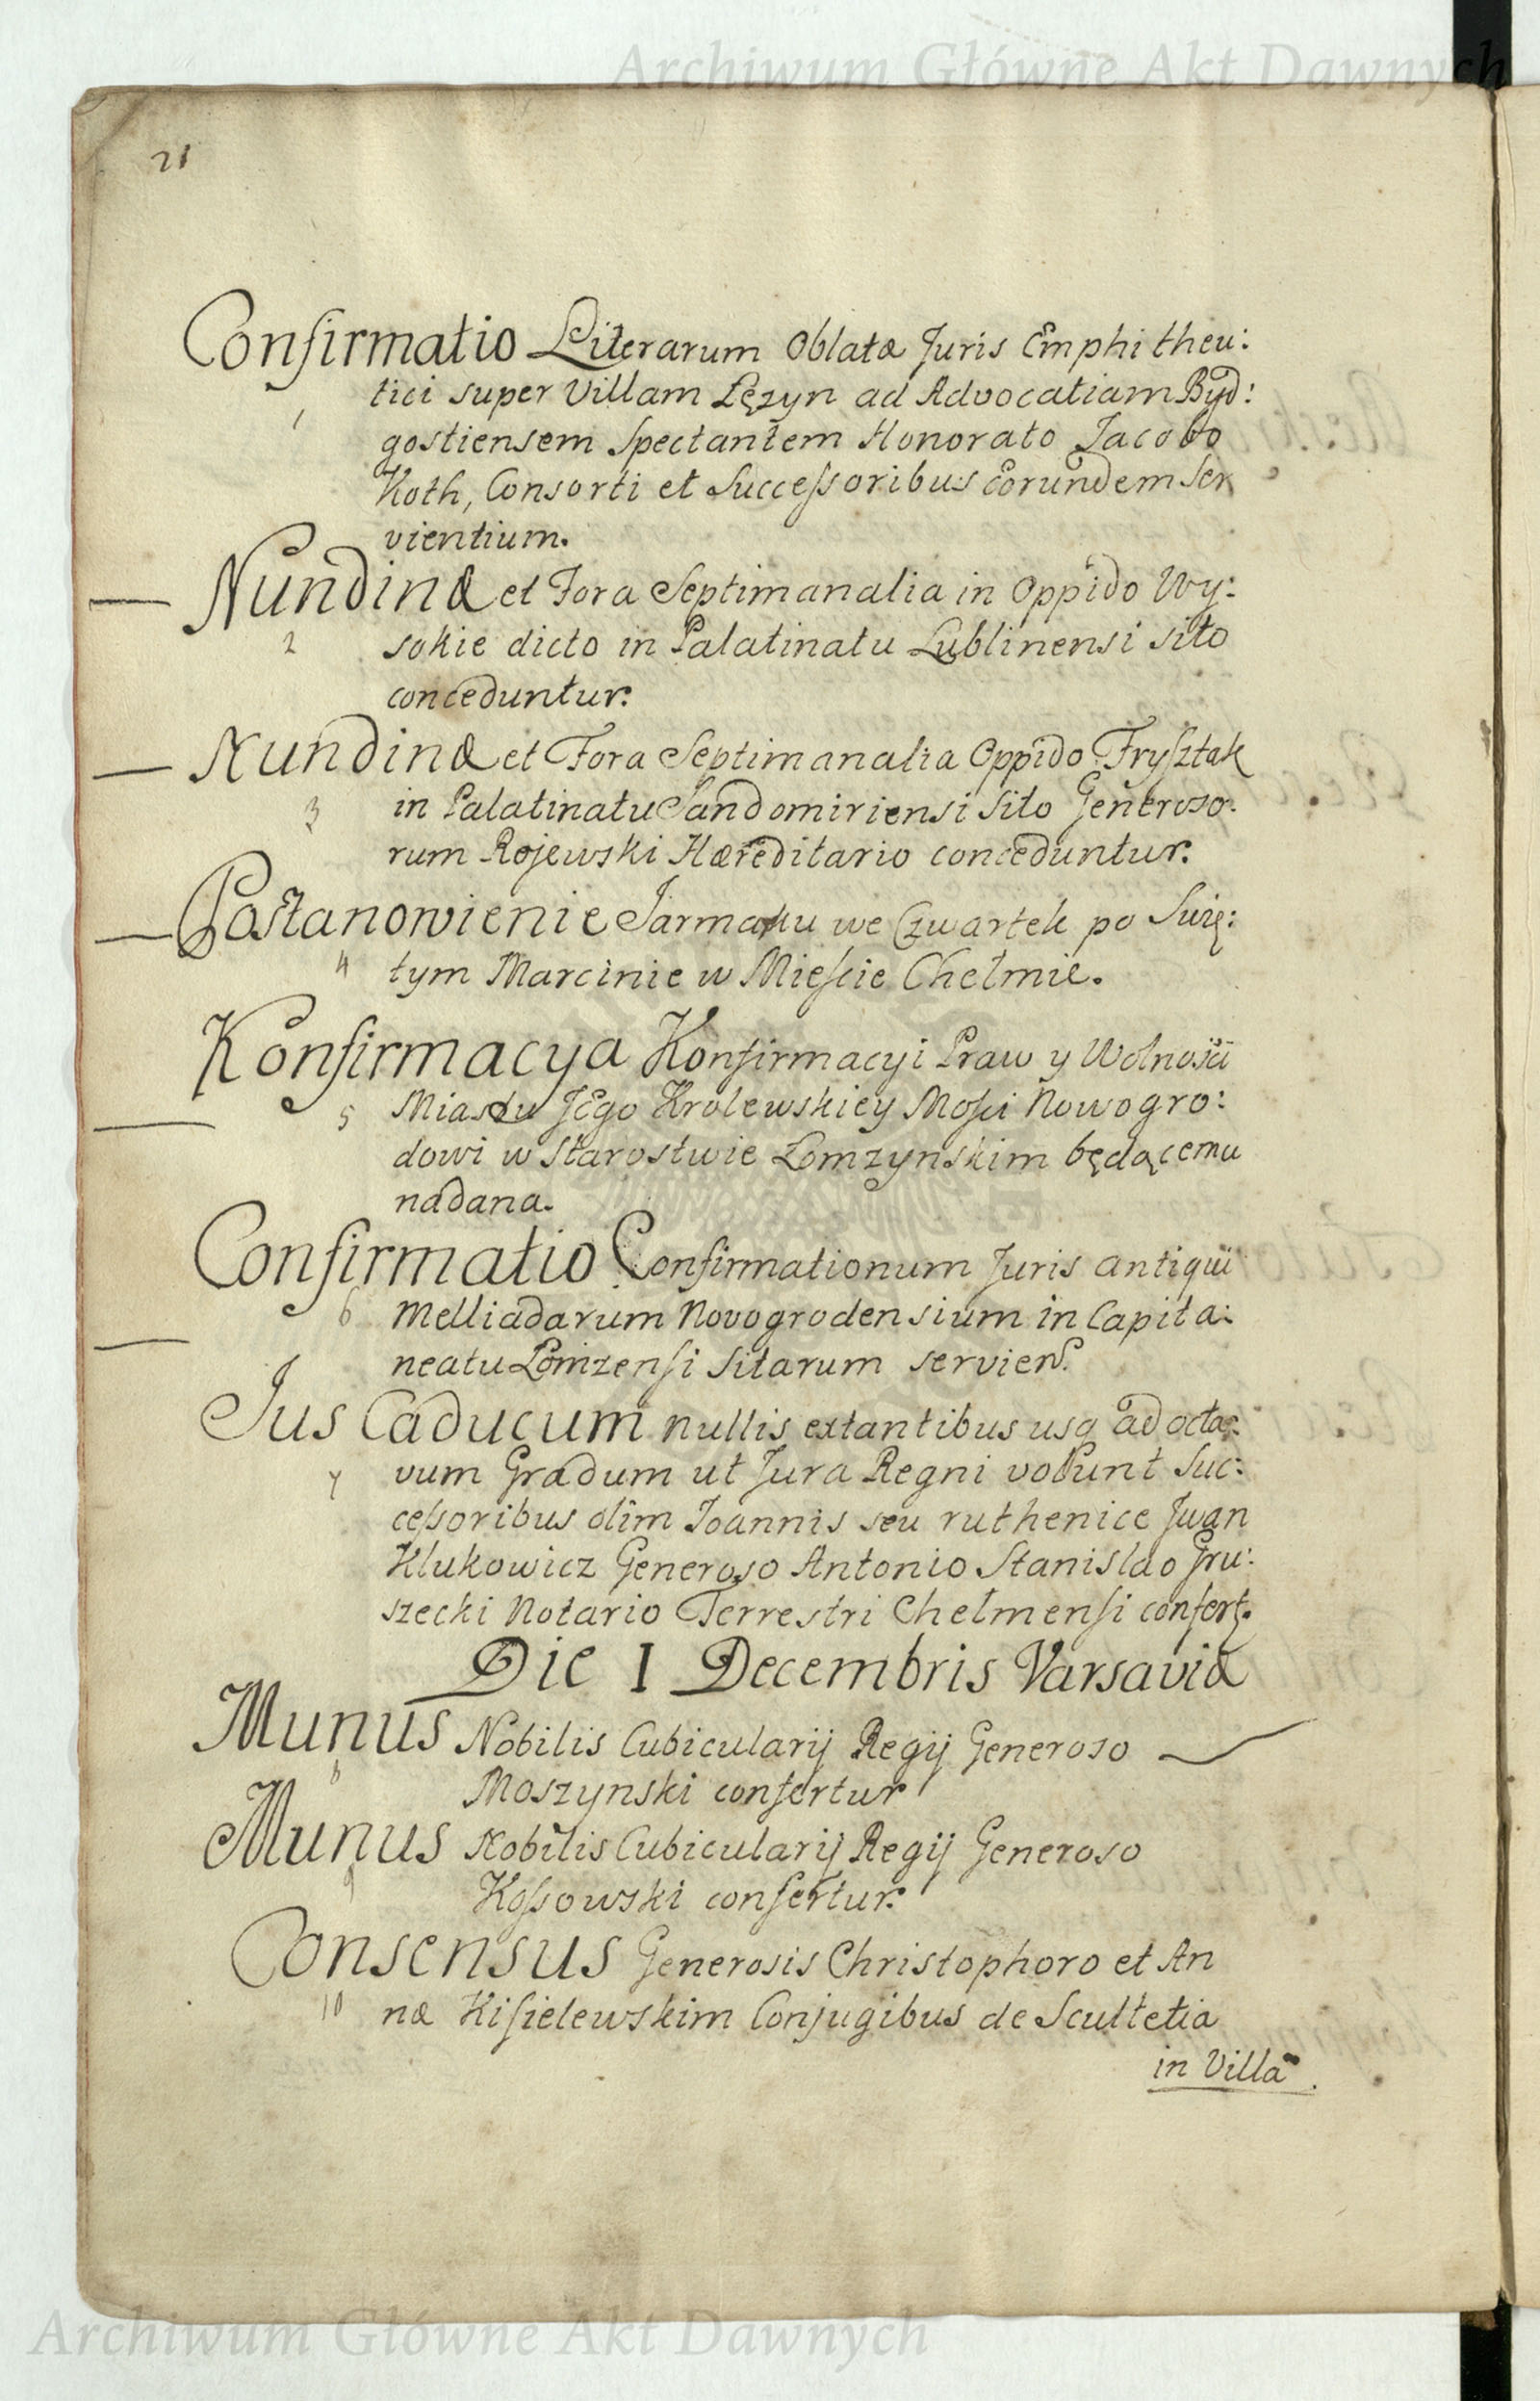 Archiwum Główne Akt Dawnych
21
Confirmatio Literarum Oblatæ Juris Emphitheu:
tici super Villam Lęzyn ad Advocatiam Byd:
1
gostiensem Spectantem Honorato Jacobo
Koth, Consorti et Successoribus Eorundem Ser
vientium.
Nundinæ et Fora Septimanalia in Oppido Wy:
2 sokie dicto in Palatinatu Lublinensi sito
conceduntur.
Nundinæ et Fora Septimanalia Oppido Frysztak
3 in Palatinatu Sandomiriensi Sito Generoso:
rum Rojewski Hæreditario conceduntur.
Postanowienie Jarmaku we Czwartek po Swię:
4 tym Marcinie w Mieście Chełmie.
Konfirmacya Konfirmacyi Praw y Wolności
5 Miastu JEgo Krolewskiey Mości Nowogro:
dowi w Starostwie Łomzynskim będącemu
nadana.
Confirmatio Confirmationum Juris antiqui
6 Melliadarum Novogrodensium in Capita:
neatu Łomzensi Sitarum servien.
Jus Caducum nullis extantibus usq ad octa:
7 vum Gradum ut Jura Regni volunt Suc:
cessoribus olim Joannis seu ruthenice Jwan
Klukowicz Generoso Antonio Stanislao Gru:
szecki Notario Terrestri Chelmensi confert.
Die I Decembris Varsaviæ
Munus Nobilis Cubicularij Regij Generoso
8
Moszynski confertur
Munus Nobilis Cubicularij Regij Generoso
9
Kossowski confertur.
Consensus Generosis Christophoro et An
10 næ Kisielewskim Conjugibus de Scultetia
in Villa
Archiwum Główne Akt Dawnych